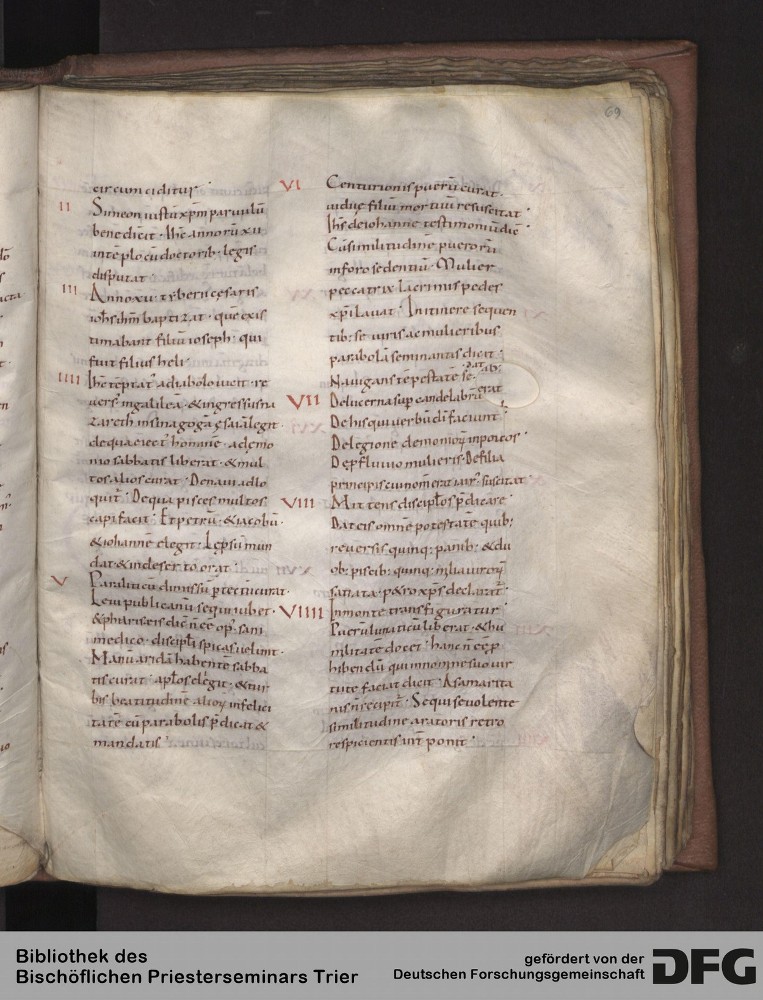 69
circumciditur
II
Simeon iustus xp̄m paruulū
benedicit · Ihc annorū xii
intēplo cū doctorib · legis
disputat ·
III
Anno xv · tyberii cesaris
iohs ihm baptizat · que exis
timabant filiū ioseph · qui
fuit filius heli ·
IIII
Ihc tēptat' adiabolo uicit · re
uers' ingalileā · &ingressus na
zareth insinagoga esaiā legit ·
de qua eiect' homine · ademo
nio sabbatis liberat · &mul
tos alios curat · Denaui adlo
quit' · Dequa pisces multos
capi facit · Et petrū · &iacobū ·
&iohannē elegit · Lepsū mun
dat &indeserto orat ·
V
Paraliticū dimissū p tectū curat ·
Leui publicanū sequi iubet ·
&phariseis dic n̄ ee op' sani
medico · discipli spicas uellunt ·
Manū aridā habentē sabba
tis curat · aplos elegit · &tur
bis beatitudinē alioꝝ infelici
tatē cū parabolis p̄dicat &
mandatis ·
VI
Centurionis puerū curat ·
uidue filiū mortuū resuscitat ·
Ihs de iohanne testimoniū dic
Cū similitudine pueroru
in foro sedentiū · Mulier
peccatrix lacrimis pedes
xp̄i lauat · Initinere sequen
tib: se uiris ac mulieribus
parabolā seminantis dicit ·
Nauigans tēpestatē se
dat · ib:
VII
De lucerna sup candelabrū
erat
De his qui uerbū dī faciunt
De legione demonioꝝ in porcos ·
De p̄fluuio mulieris · De filia
principis cui nom̄ erat iair' suscitat ·
VIII
Mittens discip̄los p̄dicare ·
Dat eis omnē potestatē quib:
reuersis quinq: panib: &du
ob: piscib: quinq: milia uiroꝝ
satiata · p&ro xp̄s declarat' ·
VIIII
Inmonte transfiguratur ·
Puerū lunaticū liberat · &hu
militatē docet · hanc n̄ eē p
hibendū qui innomine suo uir
tute faciat dicit · A samarita
nis n̄ recipit' · Sequi se uolente
similitudine aratoris retro
respicientis int'ponit ·
Bibliothek des
Bischöflichen Priesterseminars Trier
gefördert von der
Deutschen Forschungsgemeinschaft
DFG